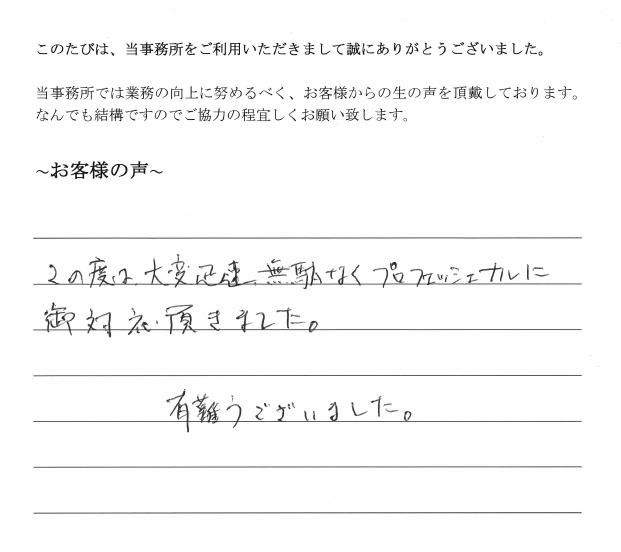 このたびは、当事務所をご利用いただきまして誠にありがとうございました。
当事務所では業務の向上に努めるべく、お客様からの生の声を頂戴しております。
なんでも結構ですのでご協力の程宜しくお願い致します。
~お客様の声~
この度は、大変迅速、無駄なくプロフェッショナルに
御対応頂きました。
有難うございました。